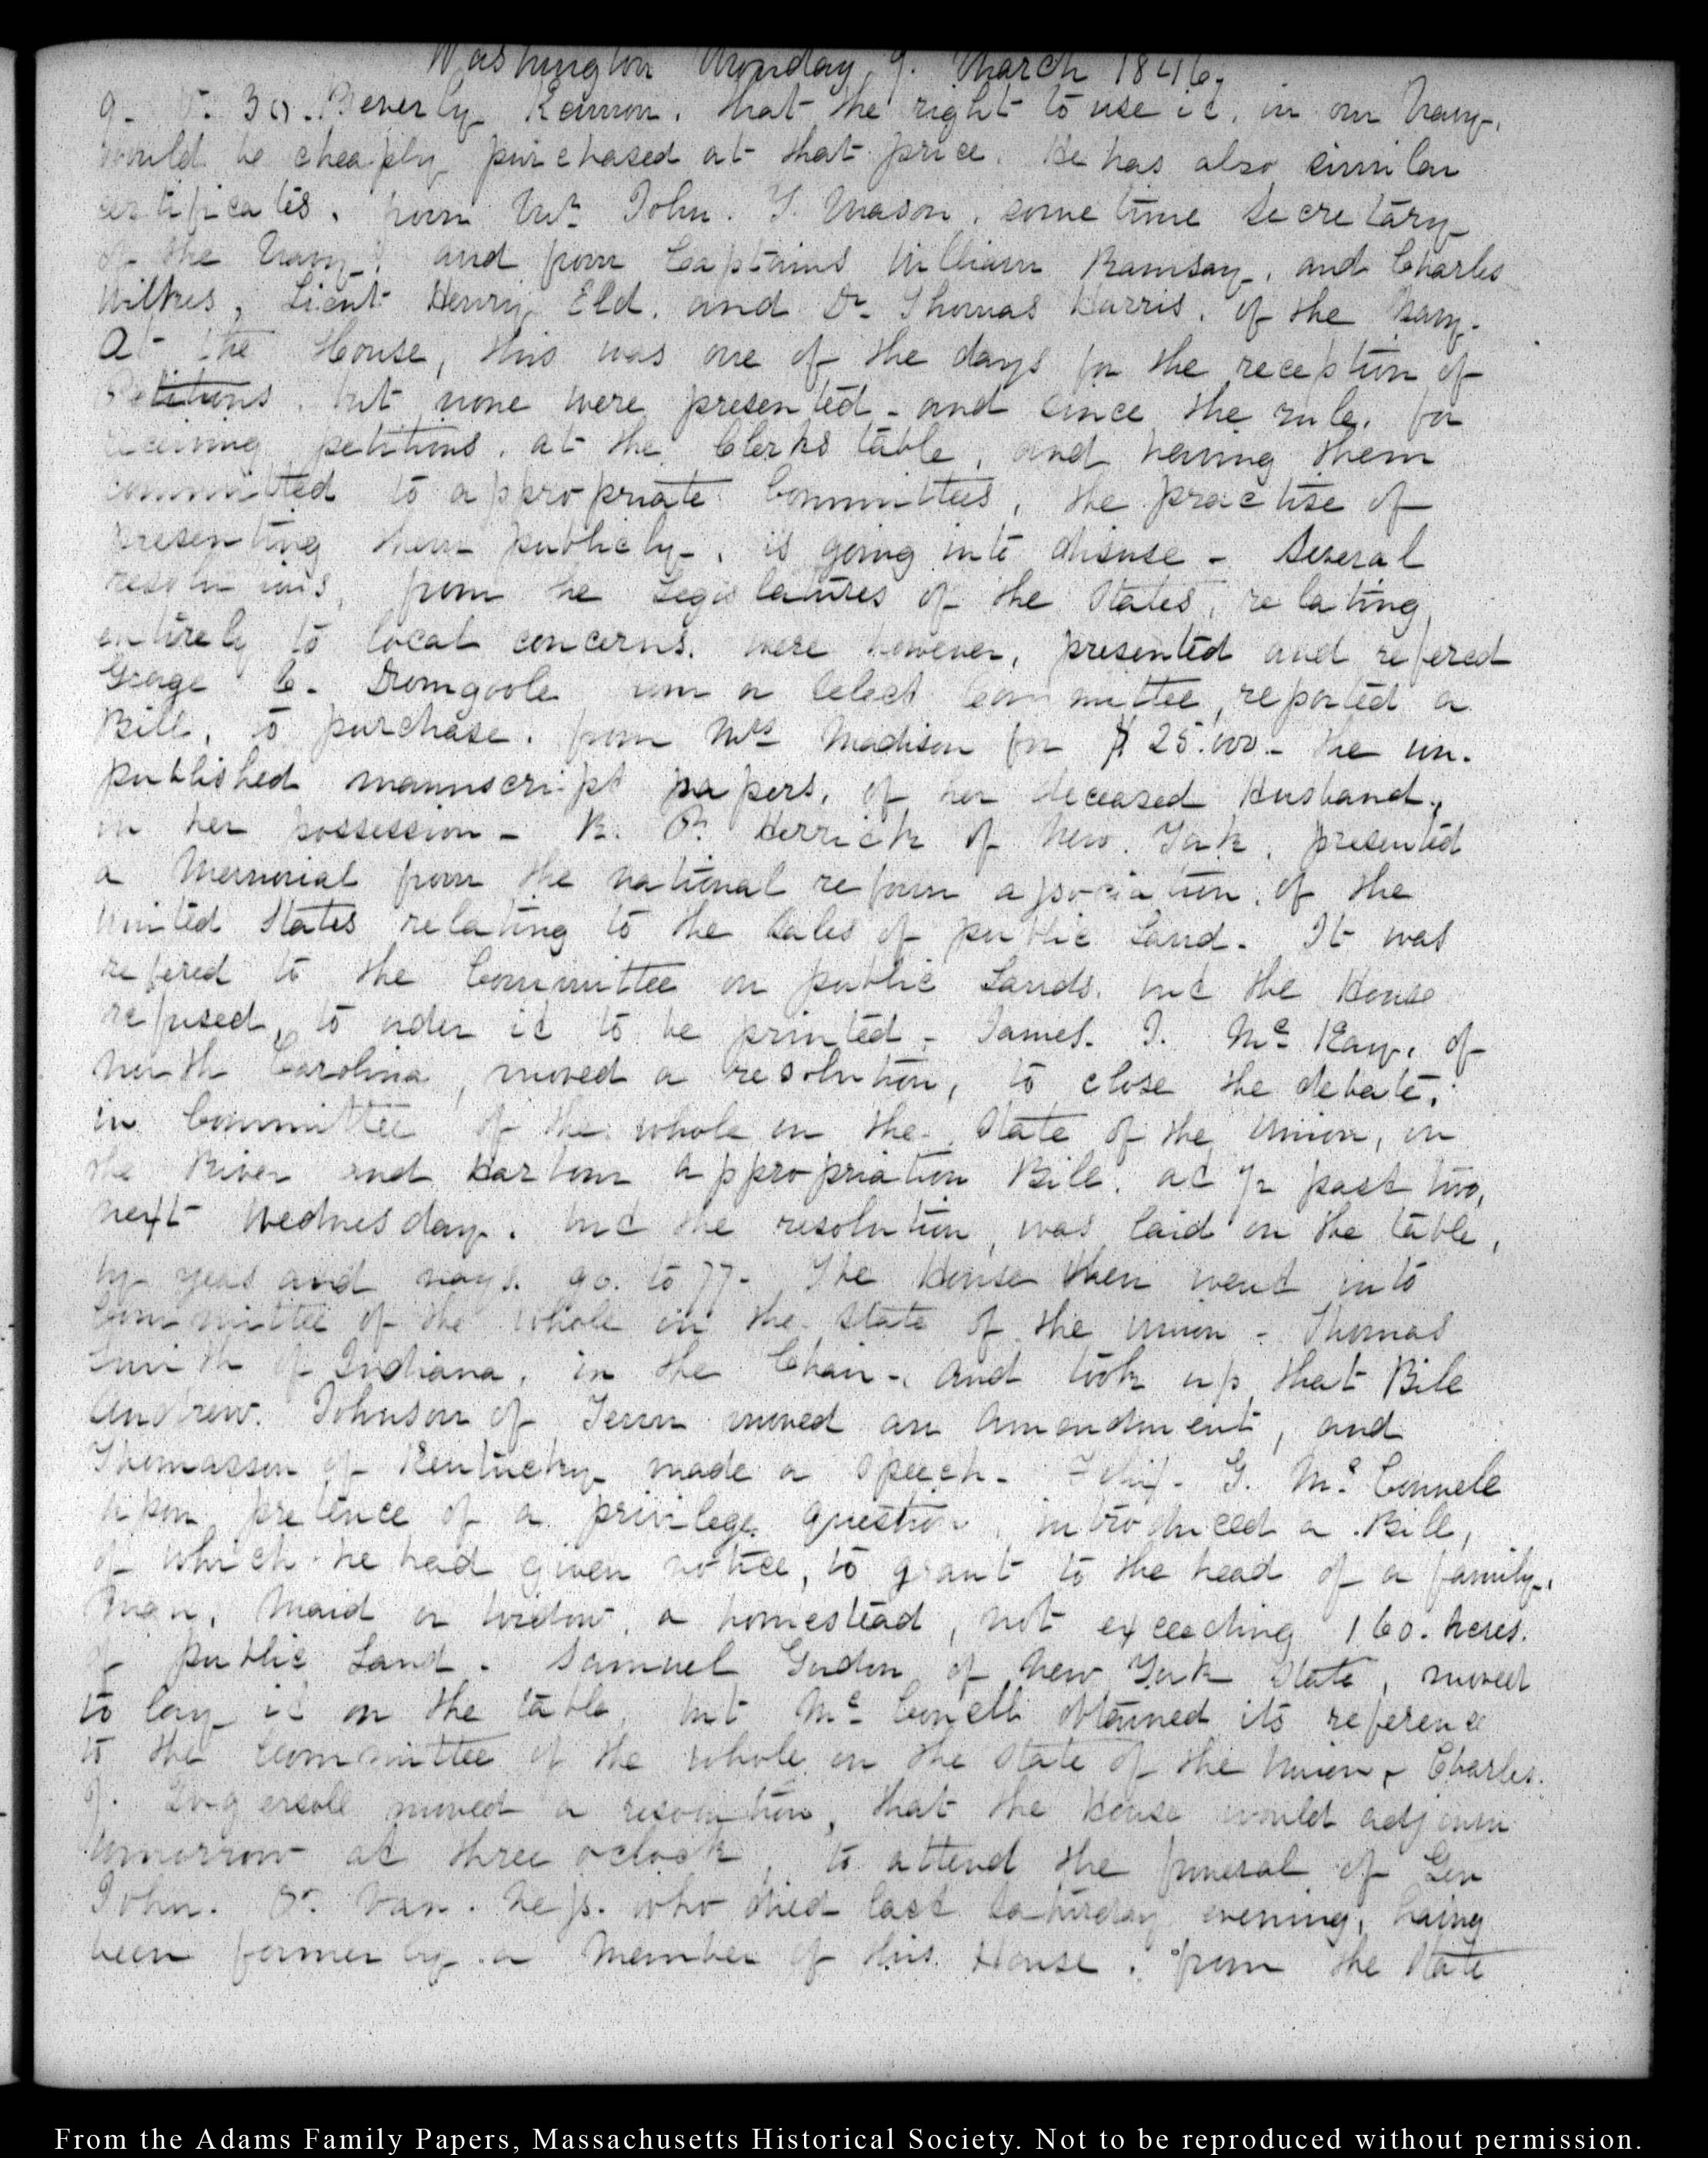 Washington Monday 9. March 1846.
9. V. 30. Beverly Kennon. that the right to use it, in our Navy,
would be cheaply purchased at that price. He has also similar
certificates, from Mr. John. Y. Mason, some time Secretary
of the Navy, and from Captains William Ramsay, and Charles
Wilkes, Lieut Henry Eld. and Dr. Thomas Harris, of the Navy.
At the House, this was one of the days for the reception of
Petitions, but none were presented - and since the rule, for
receiving petitions, at the Clerks table, and having them
committed to appropriate Committees, the practise of
presenting them publicly, is going into disuse - Several
resolutions, from the Legislatures of the States, relating
entirely to local concerns. were however, presented and refered
George C. Dromgoole from a select committee, reported a
Bill, to purchase, from Mrs Madison for $25.000 - the un-
published manuscript papers, of her deceased Husband,
in her possession - R. P. Herrick of New. York, presented
a Memorial from the national reform association, of the
United States relating to the Sales of public Land. It was
refered to the Committee on public Lands, but the House
refused, to order it to be printed - James. I. McKay, of
North Carolina, moved a resolution, to close the debate,
in Committee of the whole on the State of the Union, on
the River and Harbour appropriation Bill, at ½ past two,
next Wednesday. but the resolution, was laid on the table,
by yeas and nays. 90. to 77. The House then went into
Committee of the whole on the state of the union - Thomas
Smith of Indiana, in the Chair - and took up that Bill
Andrew. Johnson of Tenn moved an amendment, and
Thomasson of Kentucky made a Speech - Felix. G. McConnell
upon pretence of a privilege question, introduced a Bill,
of which he had given notice, to grant to the head of a family,
Man, Maid or widow, a homestead, not exceeding 160. Acres.
of public Land. Samuel Gordon of New York State, moved
to lay it on the table, but McConell obtained its reference
to the Committee of the whole on the State of the Union - Charles.
J. Ingersoll moved a resolution, that the House would adjourn
tomorrow at three oclock, to attend the funeral of Gen
John. P. Van. Ness. who died last Saturday evening, having
been formerly a Member of this House, from the State